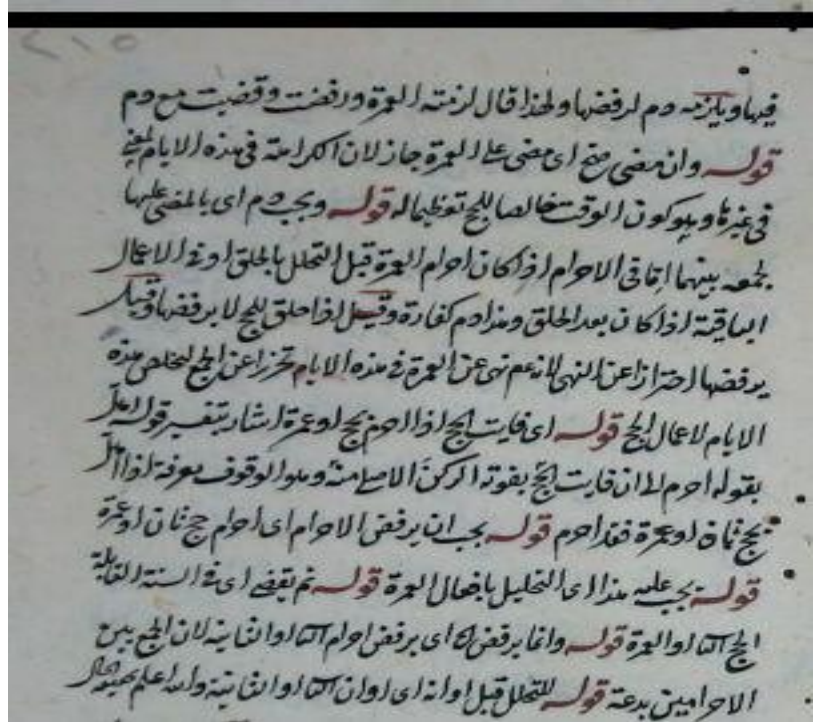 ٢١٥
فيها ويلزمه دم لرفضها ولهذا قال لزمته العمرة ورفضت وقضيت مع دم
قوله وان مضى صح اى مضى على العمرة جاز لان الكراهة فى هذه الايام لمعنى
فى غيرها وهو كون الوقت خالصا للحج تعظيما له قوله ويجب دم اى بالمضى عليها
لجمعه بينهما اما فى الاحرام اذا كان احرام العمرة قبل التحلل بالحلق او فى الاعمال
الباقية اذا كان بعد الحلق وهذا دم كفارة وقيل اذا حلق للحج لا يرفضها وقيل
يرفضها احترازا عن النهى لانه عم نهى عن العمرة فى هذه الايام تحرزا عن الجمع لتخلص هذه
الايام لاعمال الحج قوله اى فايت الحج اذا احرم بحج او عمرة اشار بتفسير قوله اهل
بقوله احرم الى ان فايت الحج بفوته الركن الاصلى منه وهو الوقوف بعرفة اذا اهل
بحج ثان او عمرة فقد احرم قوله يجب ان يرفض الاحرام اى احرام حج ثان او عمرة
قوله يجب عليه هذا اى التحليل بافعال العمرة قوله ثم يقضى اى فى السنة القابلة
الحج الثا او العمرة قوله وانما يرفض الخ اى يرفض احرام الثا او الثانية لان الجمع بين
الاحرامين بدعة قوله للتحلل قبل اوانه اى اوان الثا او الثانية والله اعلم بحقيقة الحال